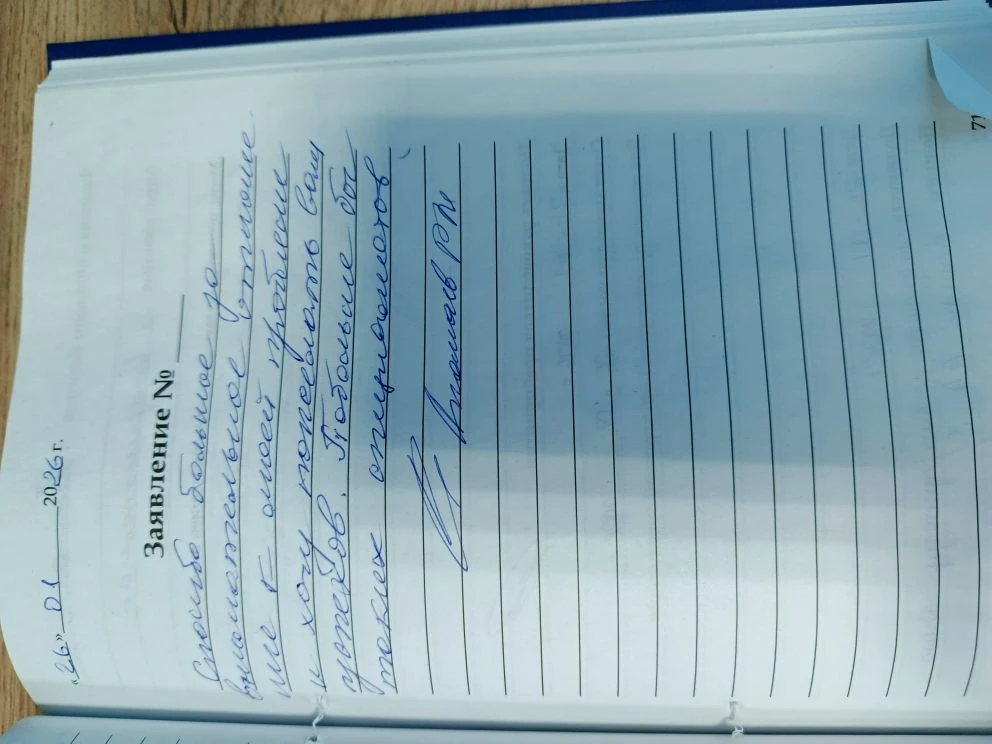 «26» 01 2026 г.
Заявление №
Спасибо большое за
внимательное отноше
ние к моей проблеме
и хочу пожелать вам
успехов. Побольше бы
таких специалистов
71